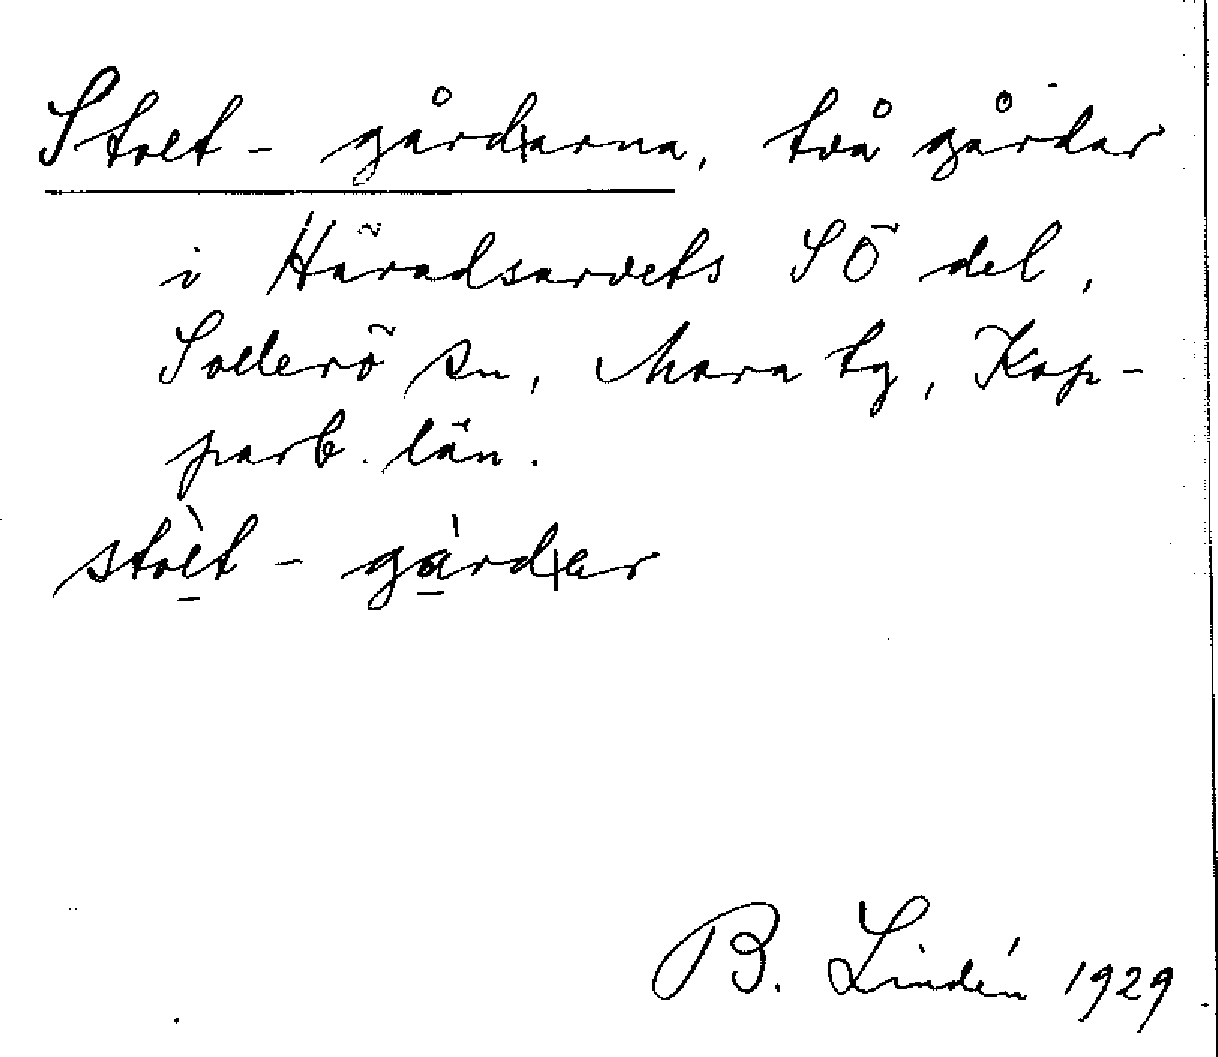 Stolt-gårdarna, två gårdar
i Häradsarvets SÖ del,
Sollerö sn, Mora tg, Kop-
parb. län.
stòlt - gàrdar
B. Lindén 1929